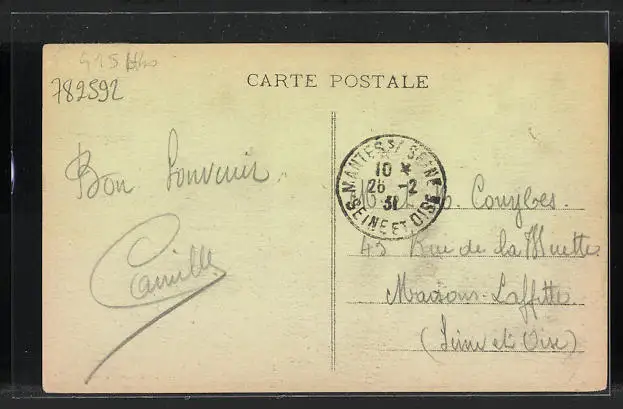 782592
CARTE POSTALE
Bon Souvenir
Camille
MANTES S/ SEINE
10 *
26 -2
31
SEINE ET OISE
Couybes
43 Rue de la Muette
Maisons-Laffitte
(Seine et Oise)